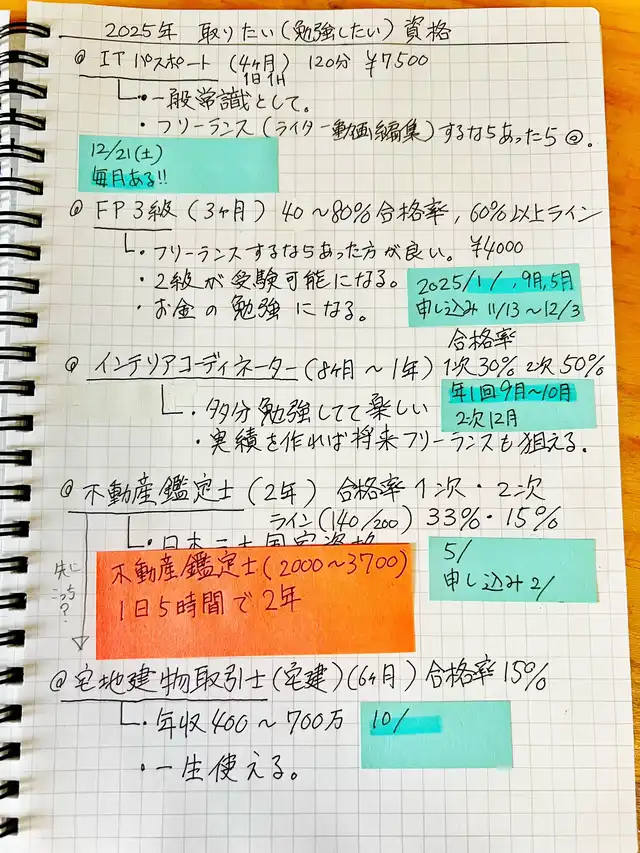 2025年 取りたい(勉強したい)資格
@ ITパスポート (4ヶ月) 120分 ¥7500
1日1H
・一般常識として。
・フリーランス(ライター動画編集)するならあったら◎。
12/21(土)
毎月ある!!
@ FP3級 (3ヶ月) 40~80%合格率, 60%以上ライン
・フリーランスするならあった方が良い。 ¥4000
・2級が受験可能になる。
・お金の勉強になる。
2025/1/ , 9月, 5月
申し込み 11/13~12/3
合格率
@ インテリアコーディネーター (8ヶ月~1年) 1次30% 2次50%
・多分勉強してて楽しい
・実績を作れば将来フリーランスも狙える。
年1回9月~10月
2次12月
@ 不動産鑑定士 (2年) 合格率 1次・2次
ライン(140/200) 33%・15%
・日本三大国家資格
不動産鑑定士(2000~3700)
1日5時間で2年
5/
申し込み 2/
先に
こっち
?
@ 宅地建物取引士(宅建)(6ヶ月) 合格率15%
・年収400~700万
・一生使える。
10/